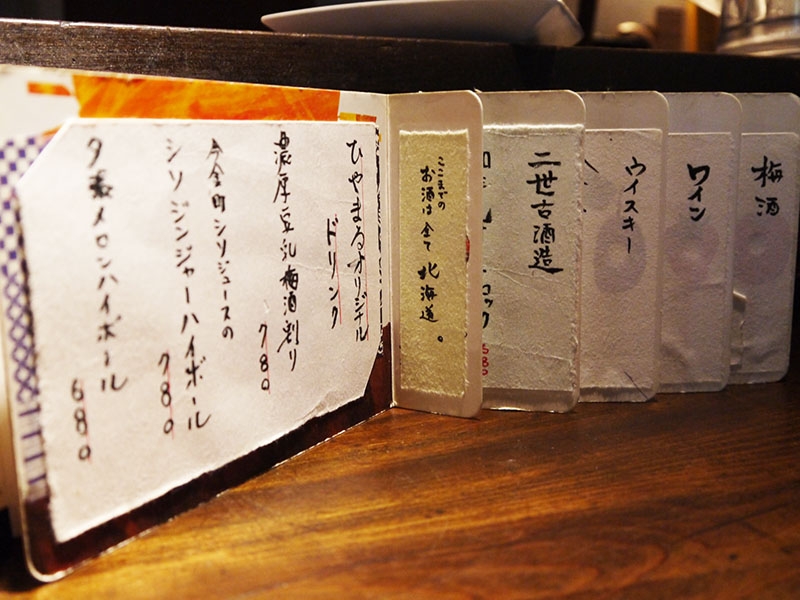 ひやまるオリジナル
ドリンク
濃厚豆乳梅酒割り
780
今金町シソジュースの
シソジンジャーハイボール
780
夕張メロンハイボール
680
ここまでの
お酒は全て北海道。
二世古酒造
ロック
680
ウイスキー
ワイン
梅酒